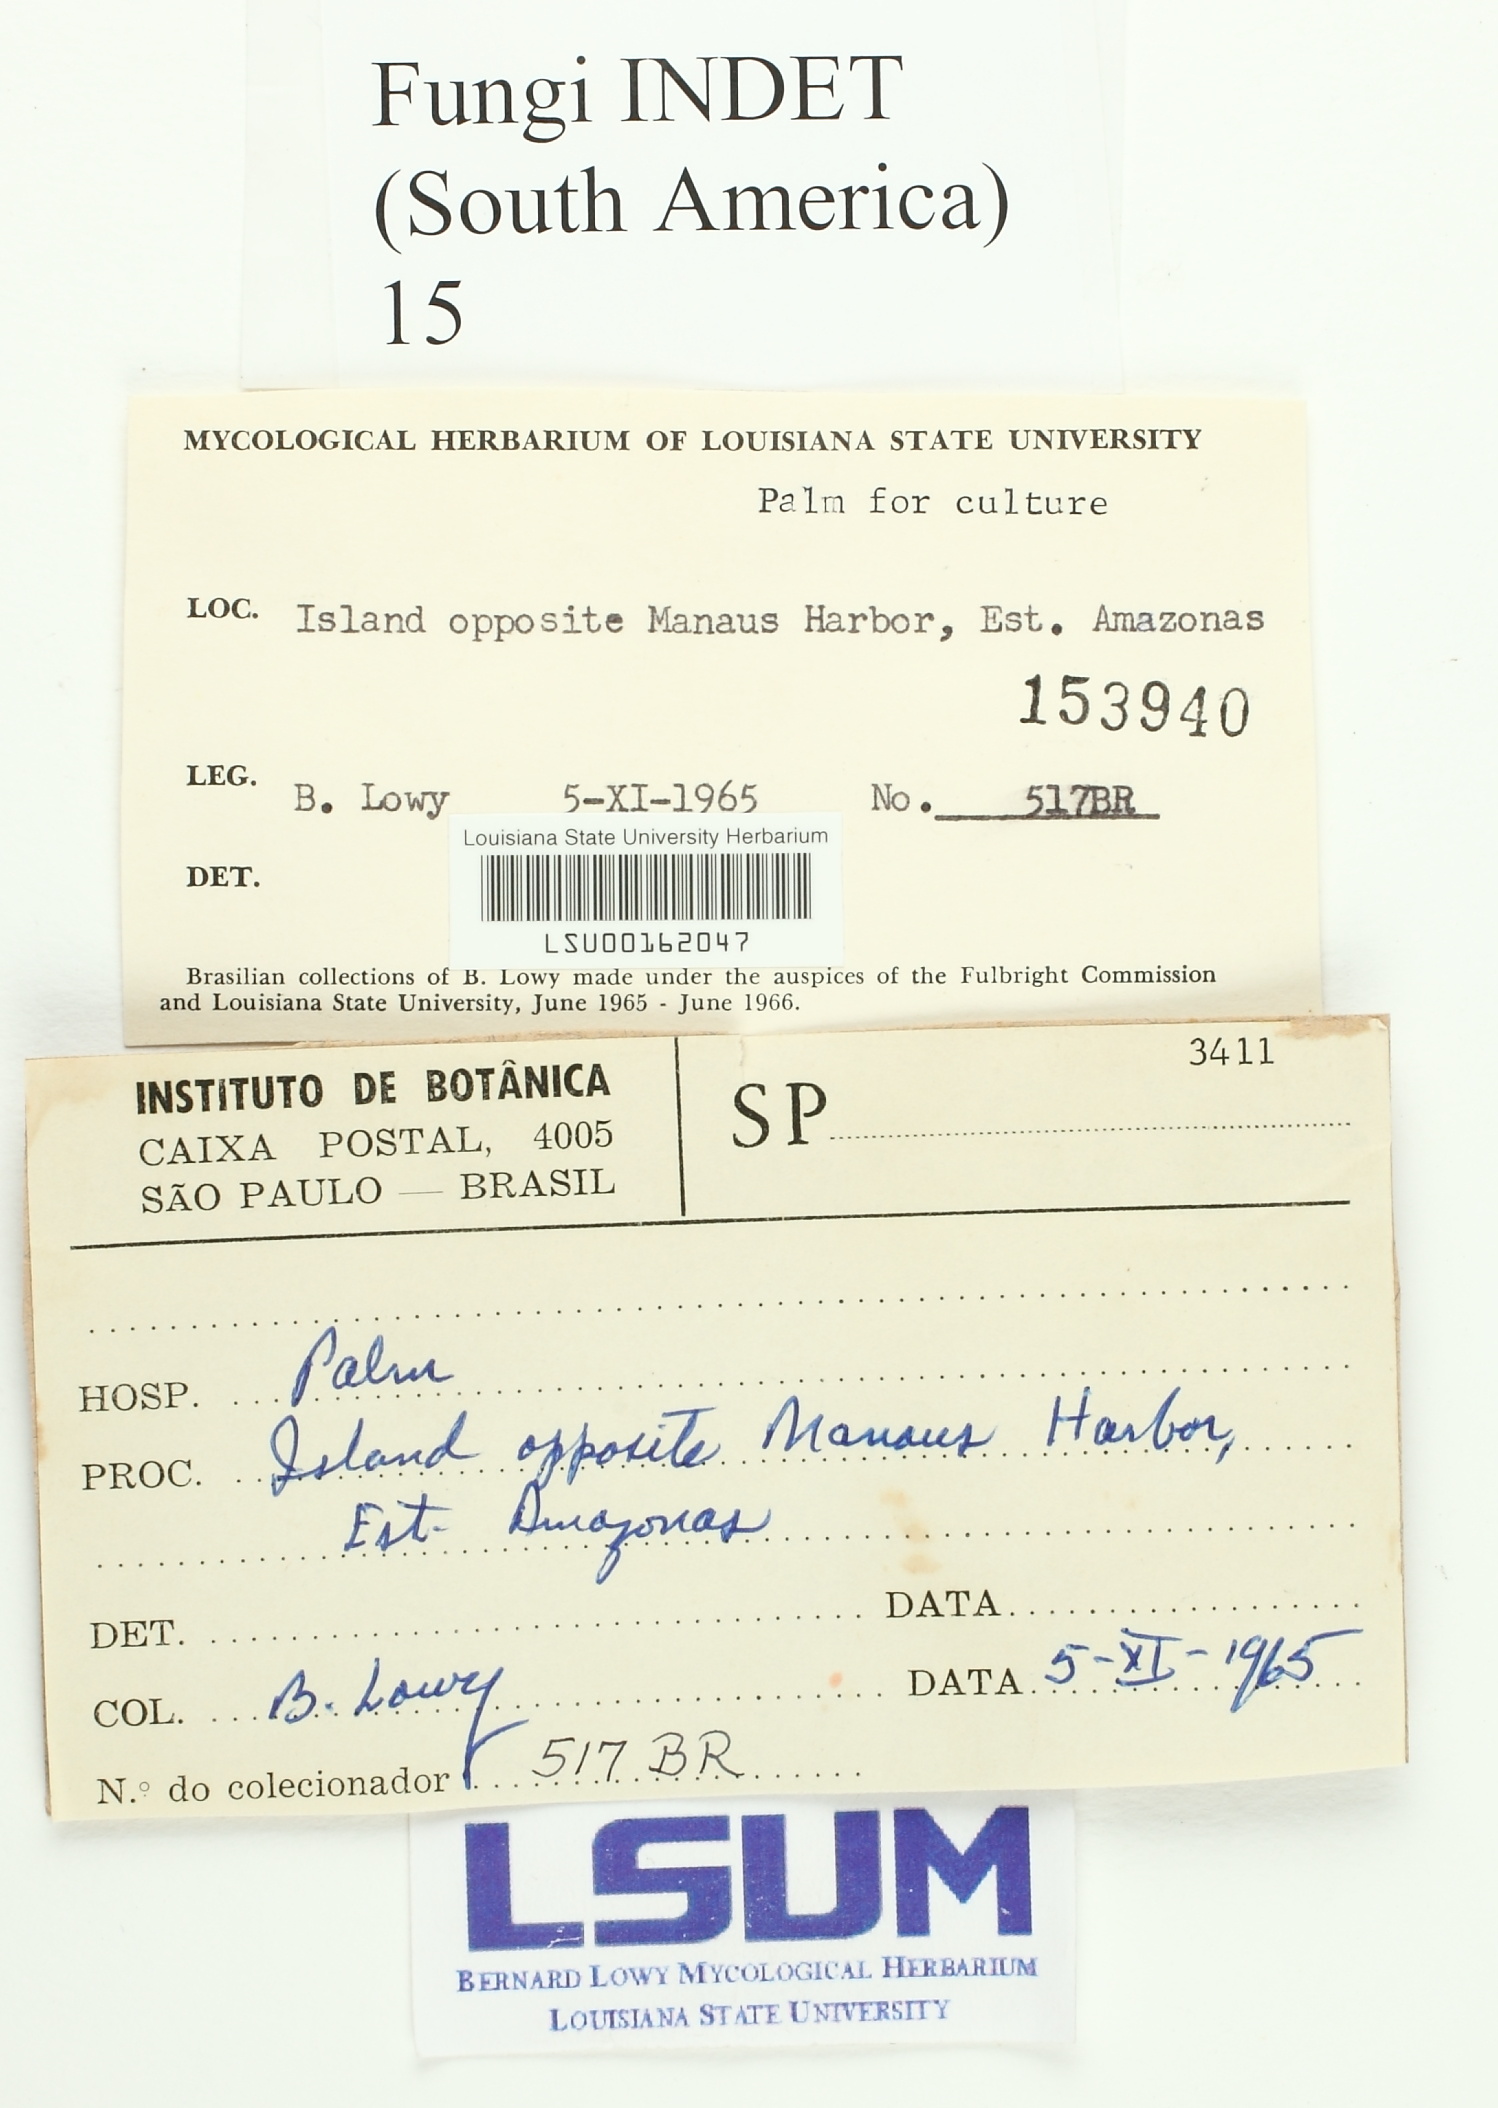 Fungi INDET
(South America)
15
MYCOLOGICAL HERBARIUM OF LOUISIANA STATE UNIVERSITY
Palm for culture
LOC. Island opposite Manaus Harbor, Est. Amazonas
153940
LEG. B. Lowy 5-XI-1965 No. 517BR
Louisiana State University Herbarium
DET.
LSU00162047
Brasilian collections of B. Lowy made under the auspices of the Fulbright Commission
and Louisiana State University, June 1965 - June 1966.
3411
INSTITUTO DE BOTÂNICA
CAIXA POSTAL, 4005
SÃO PAULO — BRASIL
SP
HOSP. Palm
PROC. Island opposite Manaus Harbor,
Est. Amazonas
DET. DATA
COL. B. Lowy DATA 5-XI-1965
N.º do colecionador 517 BR
LSUM
BERNARD LOWY MYCOLOGICAL HERBARIUM
LOUISIANA STATE UNIVERSITY